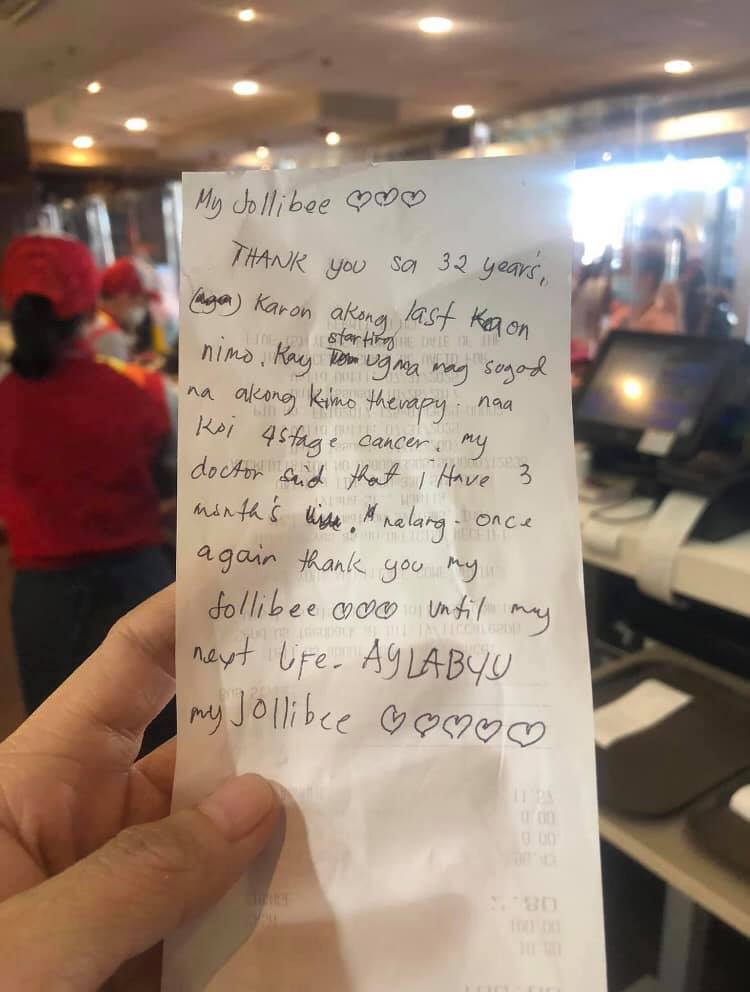 My Jollibee ♡♡♡
THANK you sa 32 year's,
Karon akong last kaon
starting
nimo. Kay ugma mag sugod
na akong kimo therapy. naa
koi 4stage cancer. my
doctor said that I Have 3
month's nalang. once
again thank you my
Jollibee ♡♡♡ until my
next life. AYLABYU
my Jollibee ♡♡♡♡♡
100.00